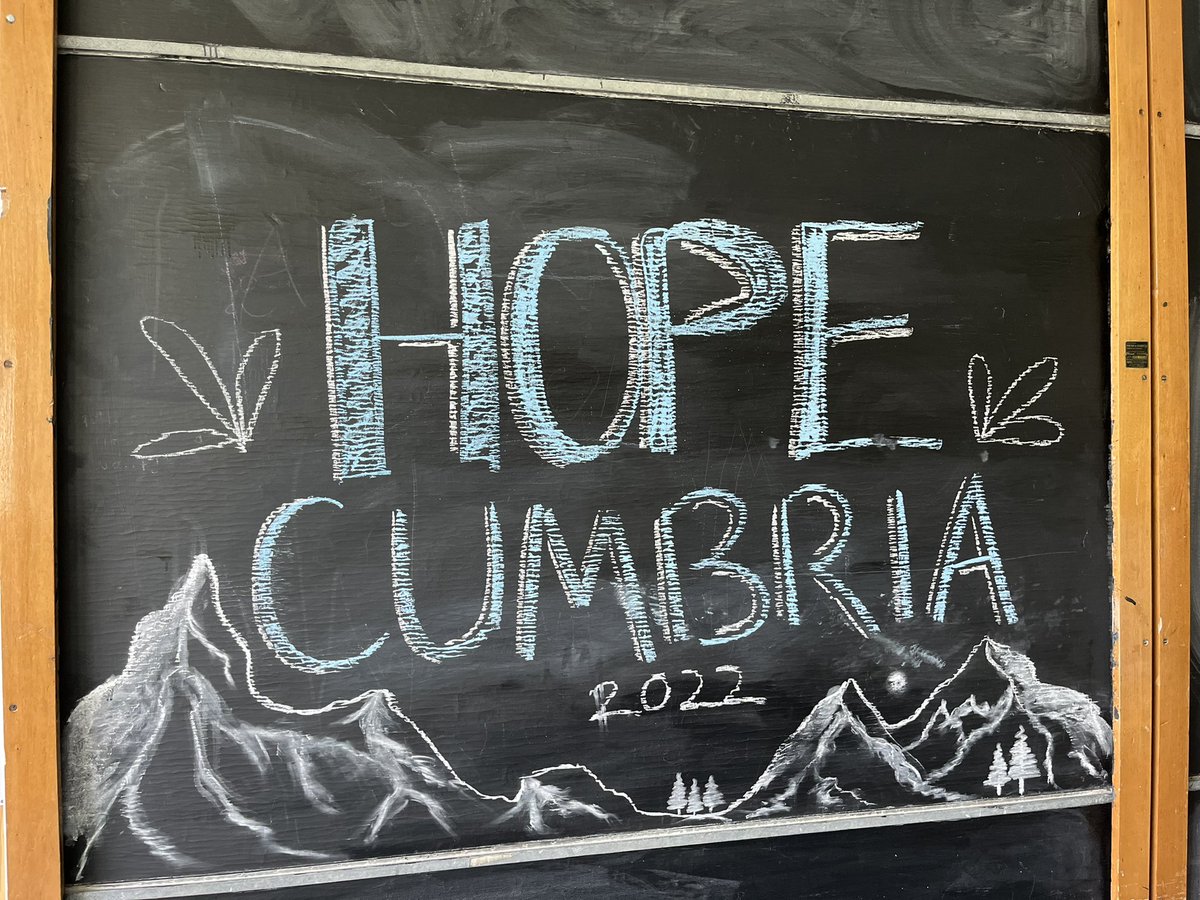 HOPE
CUMBRIA
2022